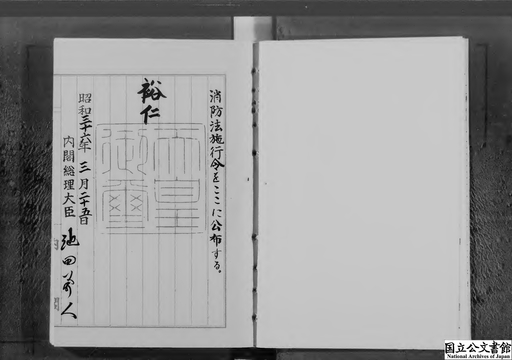 消防法施行令をここに公布する。
裕仁
天皇
御璽
昭和三十六年三月二十五日
内閣総理大臣 池田勇人
国立公文書館
National Archives of Japan